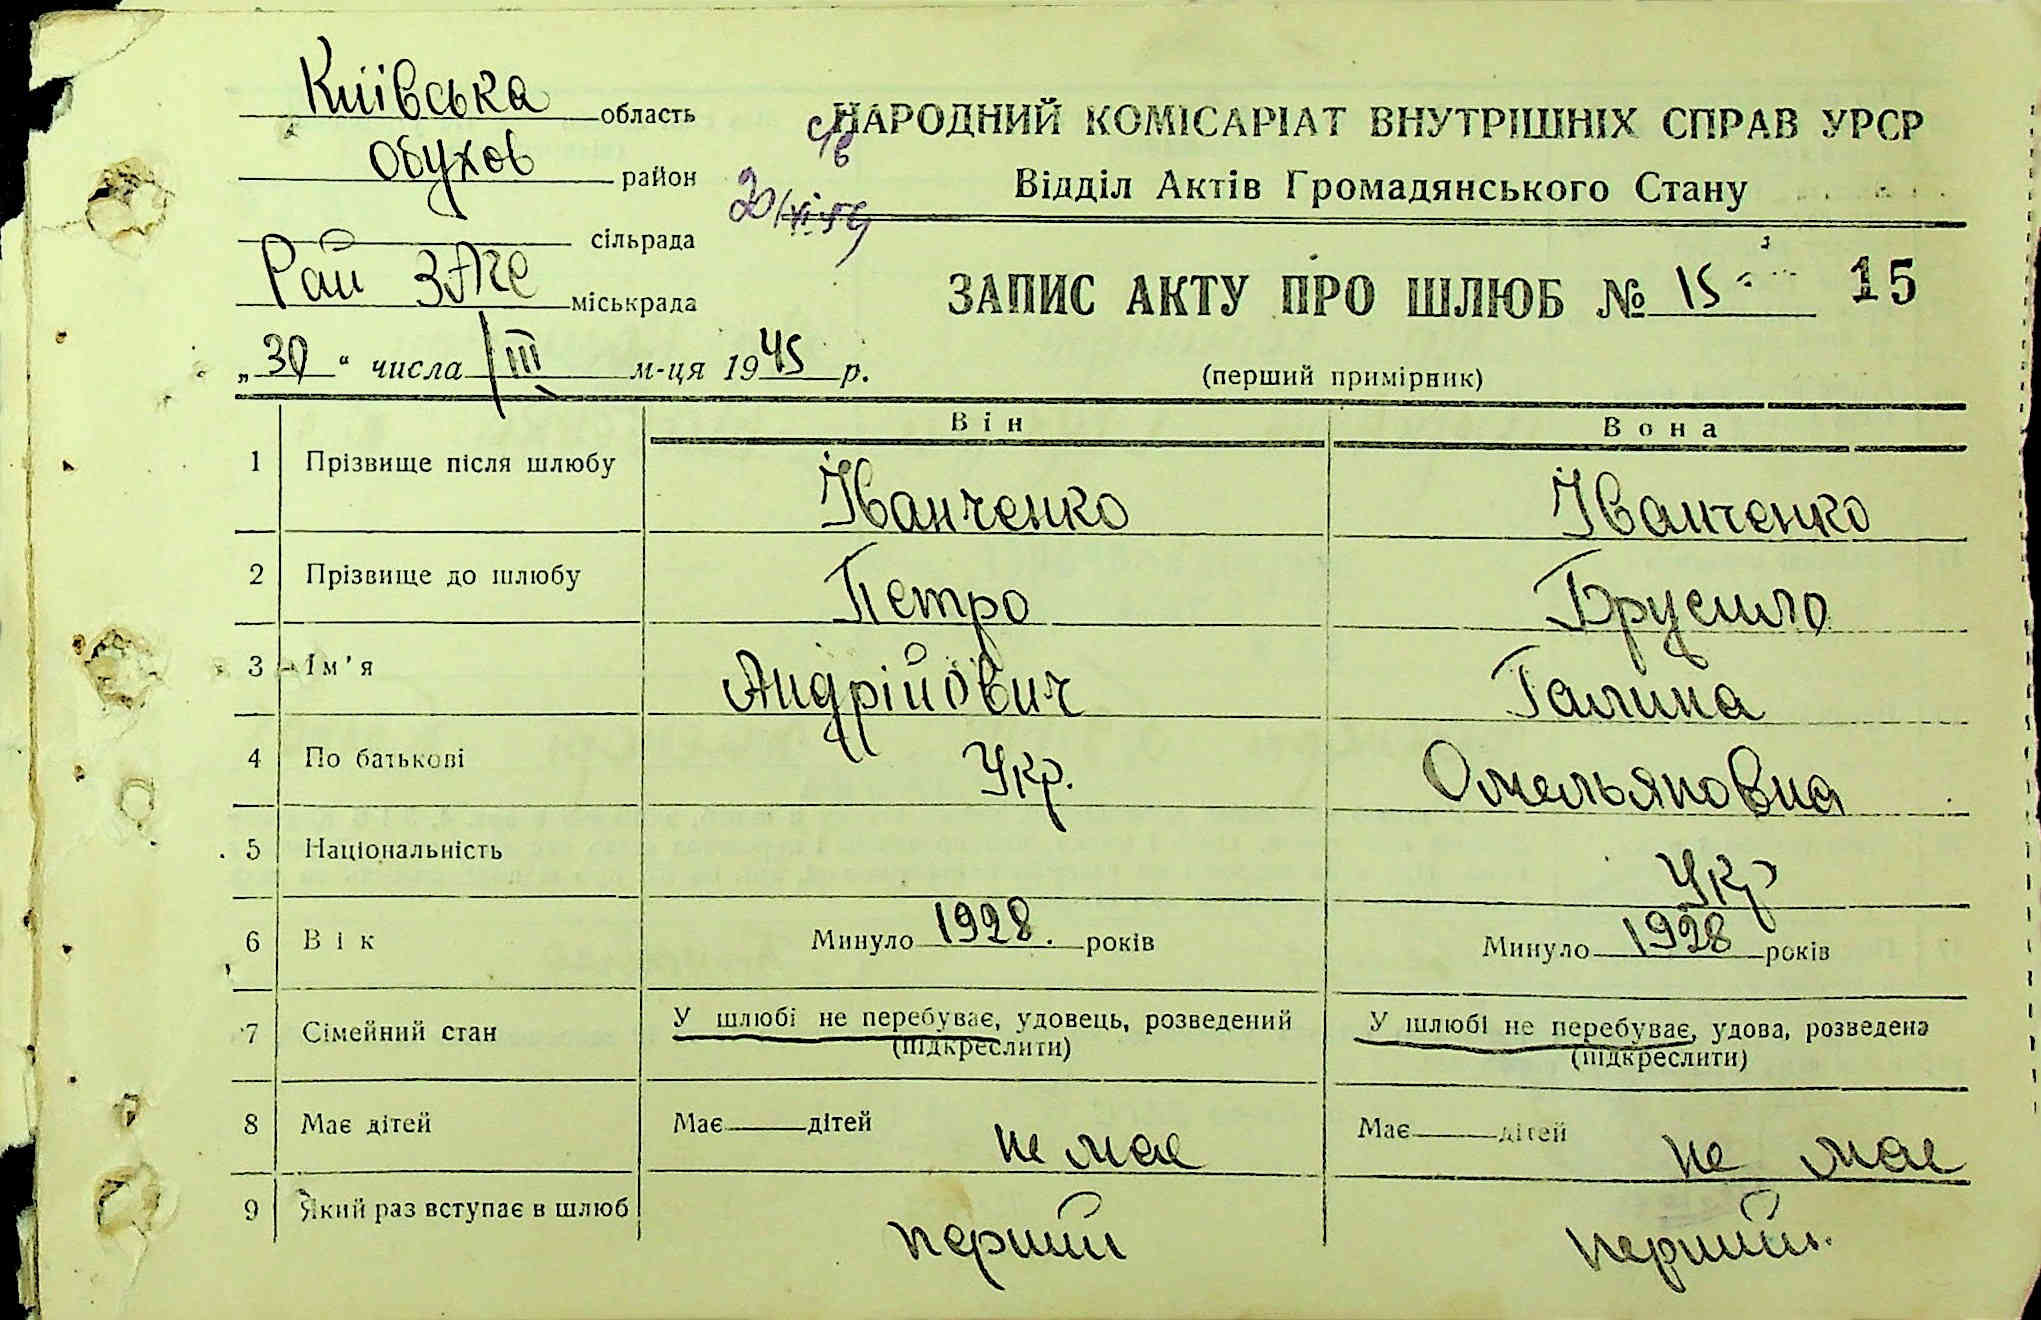 Київська область
Обухов район
сільрада
Рай ЗАГС міськрада
„30“ числа III м-ця 1945 р.
НАРОДНИЙ КОМІСАРІАТ ВНУТРІШНІХ СПРАВ УРСР
Відділ Актів Громадянського Стану
ЗАПИС АКТУ ПРО ШЛЮБ № 15 15
(перший примірник)
Він Вона
1 Прізвище після шлюбу Іванченко Іванченко
2 Прізвище до шлюбу Петро Брусило
3 Ім'я Андрійович Галина
4 По батькові Укр. Омельяновна
5 Національність Укр
6 Вік Минуло 1928. років Минуло 1928 років
7 Сімейний стан У шлюбі не перебуває, удовець, розведений (підкреслити) У шлюбі не перебуває, удова, розведена (підкреслити)
8 Має дітей Має дітей не має Має дітей не має
9 Який раз вступає в шлюб перший перший.